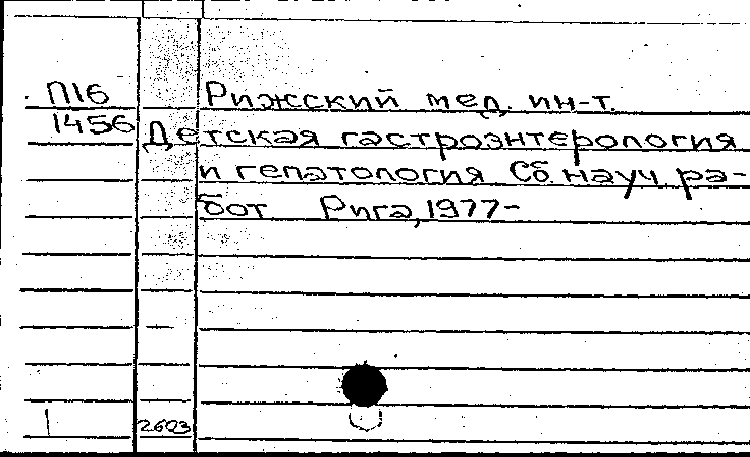 П16 Рижский мед. ин-т.
1456 Детская гастроэнтерология
и гепатология Сб. науч. ра-
бот Рига, 1977-